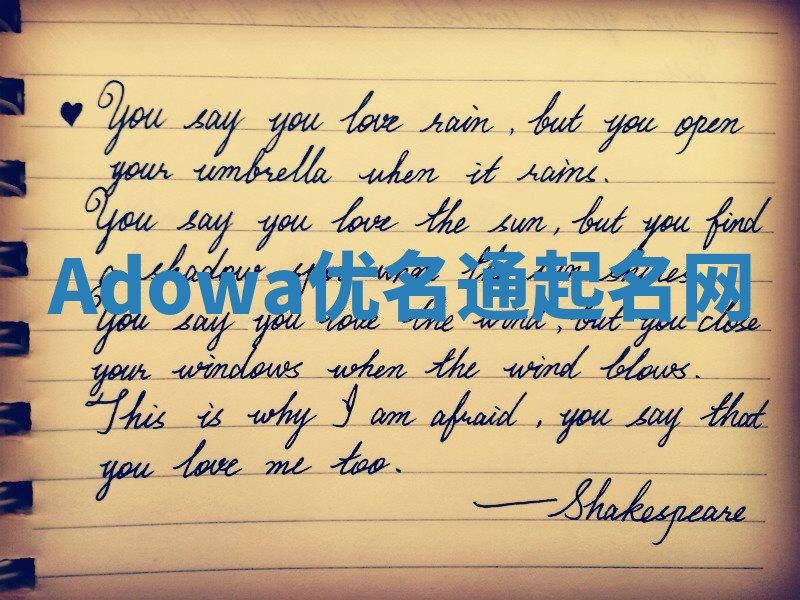 ♥ You say you love rain, but you open
your umbrella when it rains.
You say you love the sun, but you find
a shadow spot when the sun shines.
Adowa优名通起名网
You say you love the wind, but you close
your windows when the wind blows.
This is why I am afraid, you say that
you love me too.
— Shakespeare